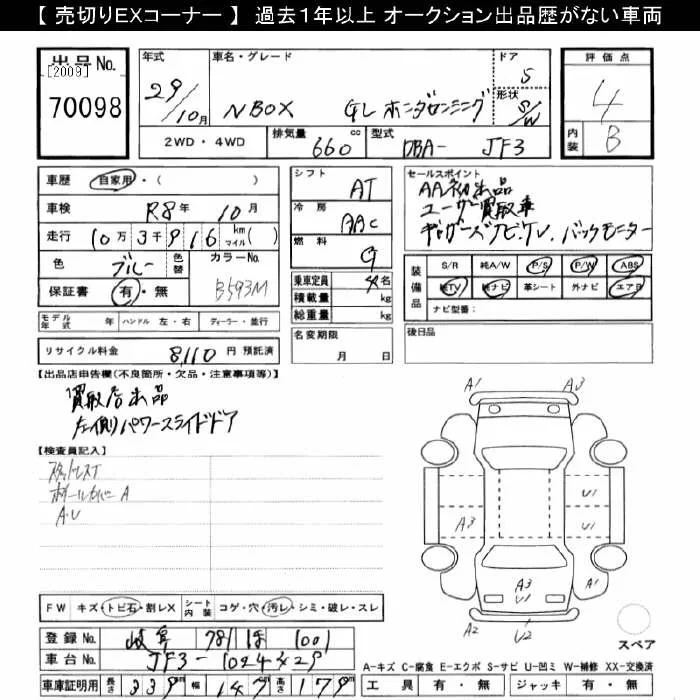 【 売切りEXコーナー 】 過去1年以上 オークション出品歴がない車両
出品No.
[2009]
70098
年式
29/10月
車名・グレード
NBOX GL ホンダセンシング
ドア
5
形状
S/W
評価点
4
内装
B
2WD・4WD
排気量 660 cc
型式 DBA- JF3
車歴 自家用・( )
車検 R8年 10月
走行 10万3千916 km マイル( )
色 ブルー
色替
カラーNo. B593M
保証書 有・無
シフト AT
冷房 AAC
燃料 G
乗車定員 4名
積載量 kg
総重量 kg
セールスポイント
AA初出品
ユーザー買取車
ギャザーズナビTV、バックモニター
装備品
S/R 純A/W P/S P/W ABS
純TV 純ナビ 革シート 外ナビ エアB
ナビ型番:
モデル年式 年 ハンドル 左・右 ディーラー・並行
名変期限
月 日
後日品
リサイクル料金 8,110 円 預託済
【出品店申告欄(不良箇所・欠品・注意事項等)】
買取店出品
左側パワースライドドア
【検査員記入】
スタッドレスT
ホイールカバー A
A・U
A1 A3
U1
A3 U1
A3
U1
A1
A2 U2
スペア
FW キズ・トビ石・割レX
シート内装 コゲ・穴・汚レ・シミ・破レ・スレ
登録No. 岐阜 781 ほ 1001
車台No. JF3-1024429
車庫証明用 長さ 339 幅 147 高さ 179
A-キズ C-腐食 E-エクボ S-サビ U-凹ミ W-補修 XX-交換済
工具 有・無 ジャッキ 有・無